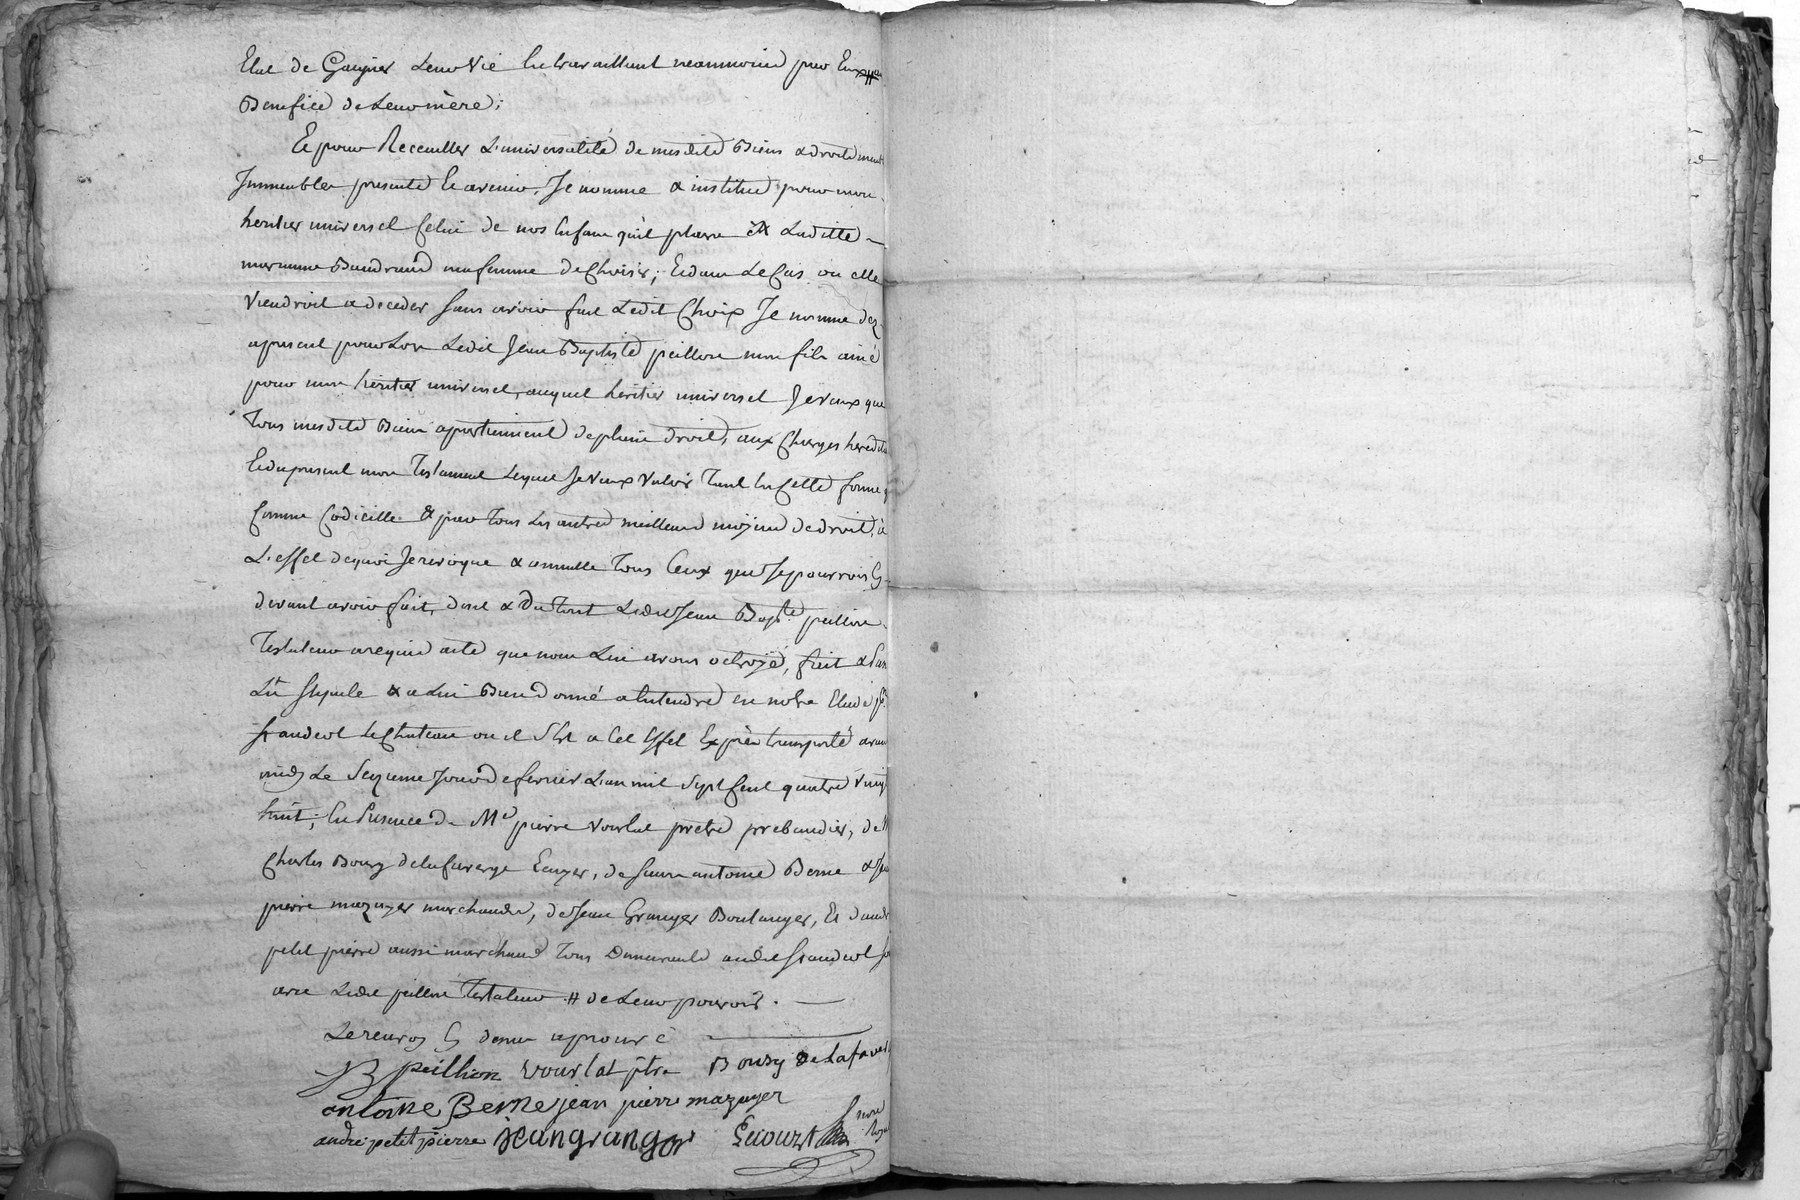 Etat de Gaigner Leur vie En travaillant neanmoins pour Eux au
Benefice de Leur mère;
Et pour Receuiller L'universalité de mesdits Biens & droits meub
Immeubles presents & avenir, Je nomme & institue pour mon
heritier universel Celui de nos Enfans qu'il plaira a Laditte
marianne Baudrand ma femme de Choisir; Et dans Le Cas ou elle
viendroit a deceder sans avoir fait Ledit Choix Je nomme dez
apresent pour Lors Ledit Jean Baptiste peillon mon fils ainé
pour mon héritier universel, auquel héritier universel Je veux que
Tous mesdits Biens apartiennent de plein droit, aux Charges heredita
Et du present mon Testament Lequel Je veux valoir Tant En Cette forme q
Comme Codicille & par Tous Les autres meilleurs moyens de droit, à
L'effet de quoi Je revoque & annulle Tous Ceux que Je pourrois Cy
devant avoir fait, dont & du Tout Ledit Jean Bapte peillon
Testateur a requis acte que nous Lui avons octroyé, fait & Pas
Lû Stipulé & a Lui Bien donné a Entendre en notre Etude
St andeol Le Chateau ou il S'est a Cet Effet Exprès transporté avant
midy Le Seizieme Jour de fevrier L'an mil Sept Cent quatre vingt
huit; En Presence de Me pierre vourlat pretre prebandier, de M
Charles Boury de la faverge Ecuyer, de Sieurs antoine Berne & Jea
pierre mazuyer marchands, de Jean Granger Boulanger, Et d'andr
petit pierre aussi marchand Tous Demeurants audit St andeol
avec Ledit peillon Testateur # de Leur pouvoir.
Le renvoy Cy dessus aprouvé
JB peillion vourlat ptre Boury de Lafaver
antoine Berne jean pierre mazuyer
andré petit pierre jean granger Lecourt